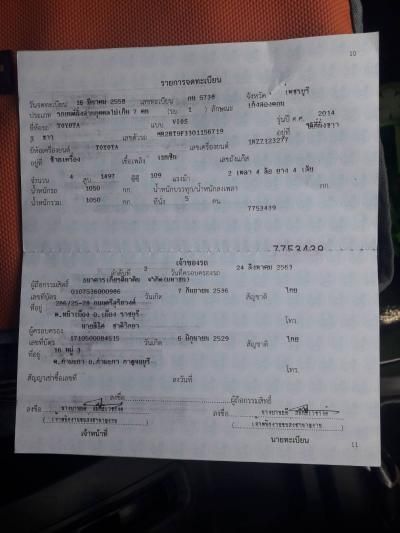 10
รายการจดทะเบียน
วันจดทะเบียน 16 มีนาคม 2558 เลขทะเบียน กย 5738 จังหวัด เพชรบุรี
ประเภท รถยนต์นั่งส่วนบุคคลไม่เกิน 7 คน (รย. 1) ลักษณะ เก๋งสองตอน
ยี่ห้อรถ TOYOTA แบบ VIOS รุ่นปี ค.ศ. 2014
สี ขาว เลขตัวรถ MR2BT9F3301156719 อยู่ที่
ยี่ห้อเครื่องยนต์ TOYOTA เลขเครื่องยนต์ 1NZZ123277
อยู่ที่ ซ้ายเครื่อง เชื้อเพลิง เบนซิน เลขถังแก๊ส
จำนวน 4 สูบ 1497 ซีซี 109 แรงม้า 2 เพลา 4 ล้อ ยาง 4 เส้น
น้ำหนักรถ 1050 กก. น้ำหนักบรรทุก/น้ำหนักลงเพลา กก.
น้ำหนักรวม 1050 กก. ที่นั่ง 5 คน
7753439
7753439
เจ้าของรถ
ลำดับที่ 2 วันที่ครอบครองรถ 24 สิงหาคม 2563
ผู้ถือกรรมสิทธิ์ ธนาคารเกียรตินาคิน จำกัด(มหาชน)
เลขที่บัตร 0107536000986 วันเกิด 7 กันยายน 2536 สัญชาติ ไทย
ที่อยู่ 286/25-28 ถนนศรีสุริยวงศ์
ต.หน้าเมือง อ.เมือง ราชบุรี โทร.
ผู้ครอบครอง
เลขที่บัตร 1710500084515 วันเกิด 6 มิถุนายน 2529 สัญชาติ ไทย
ที่อยู่ 16 หมู่ 3
ต.ท่ามะกา อ.ท่ามะกา กาญจนบุรี โทร.
สัญญาเช่าซื้อเลขที่ ลงวันที่
ลงชื่อ ผู้ถือกรรมสิทธิ์
ลงชื่อ ลงชื่อ
เจ้าหน้าที่ นายทะเบียน
11